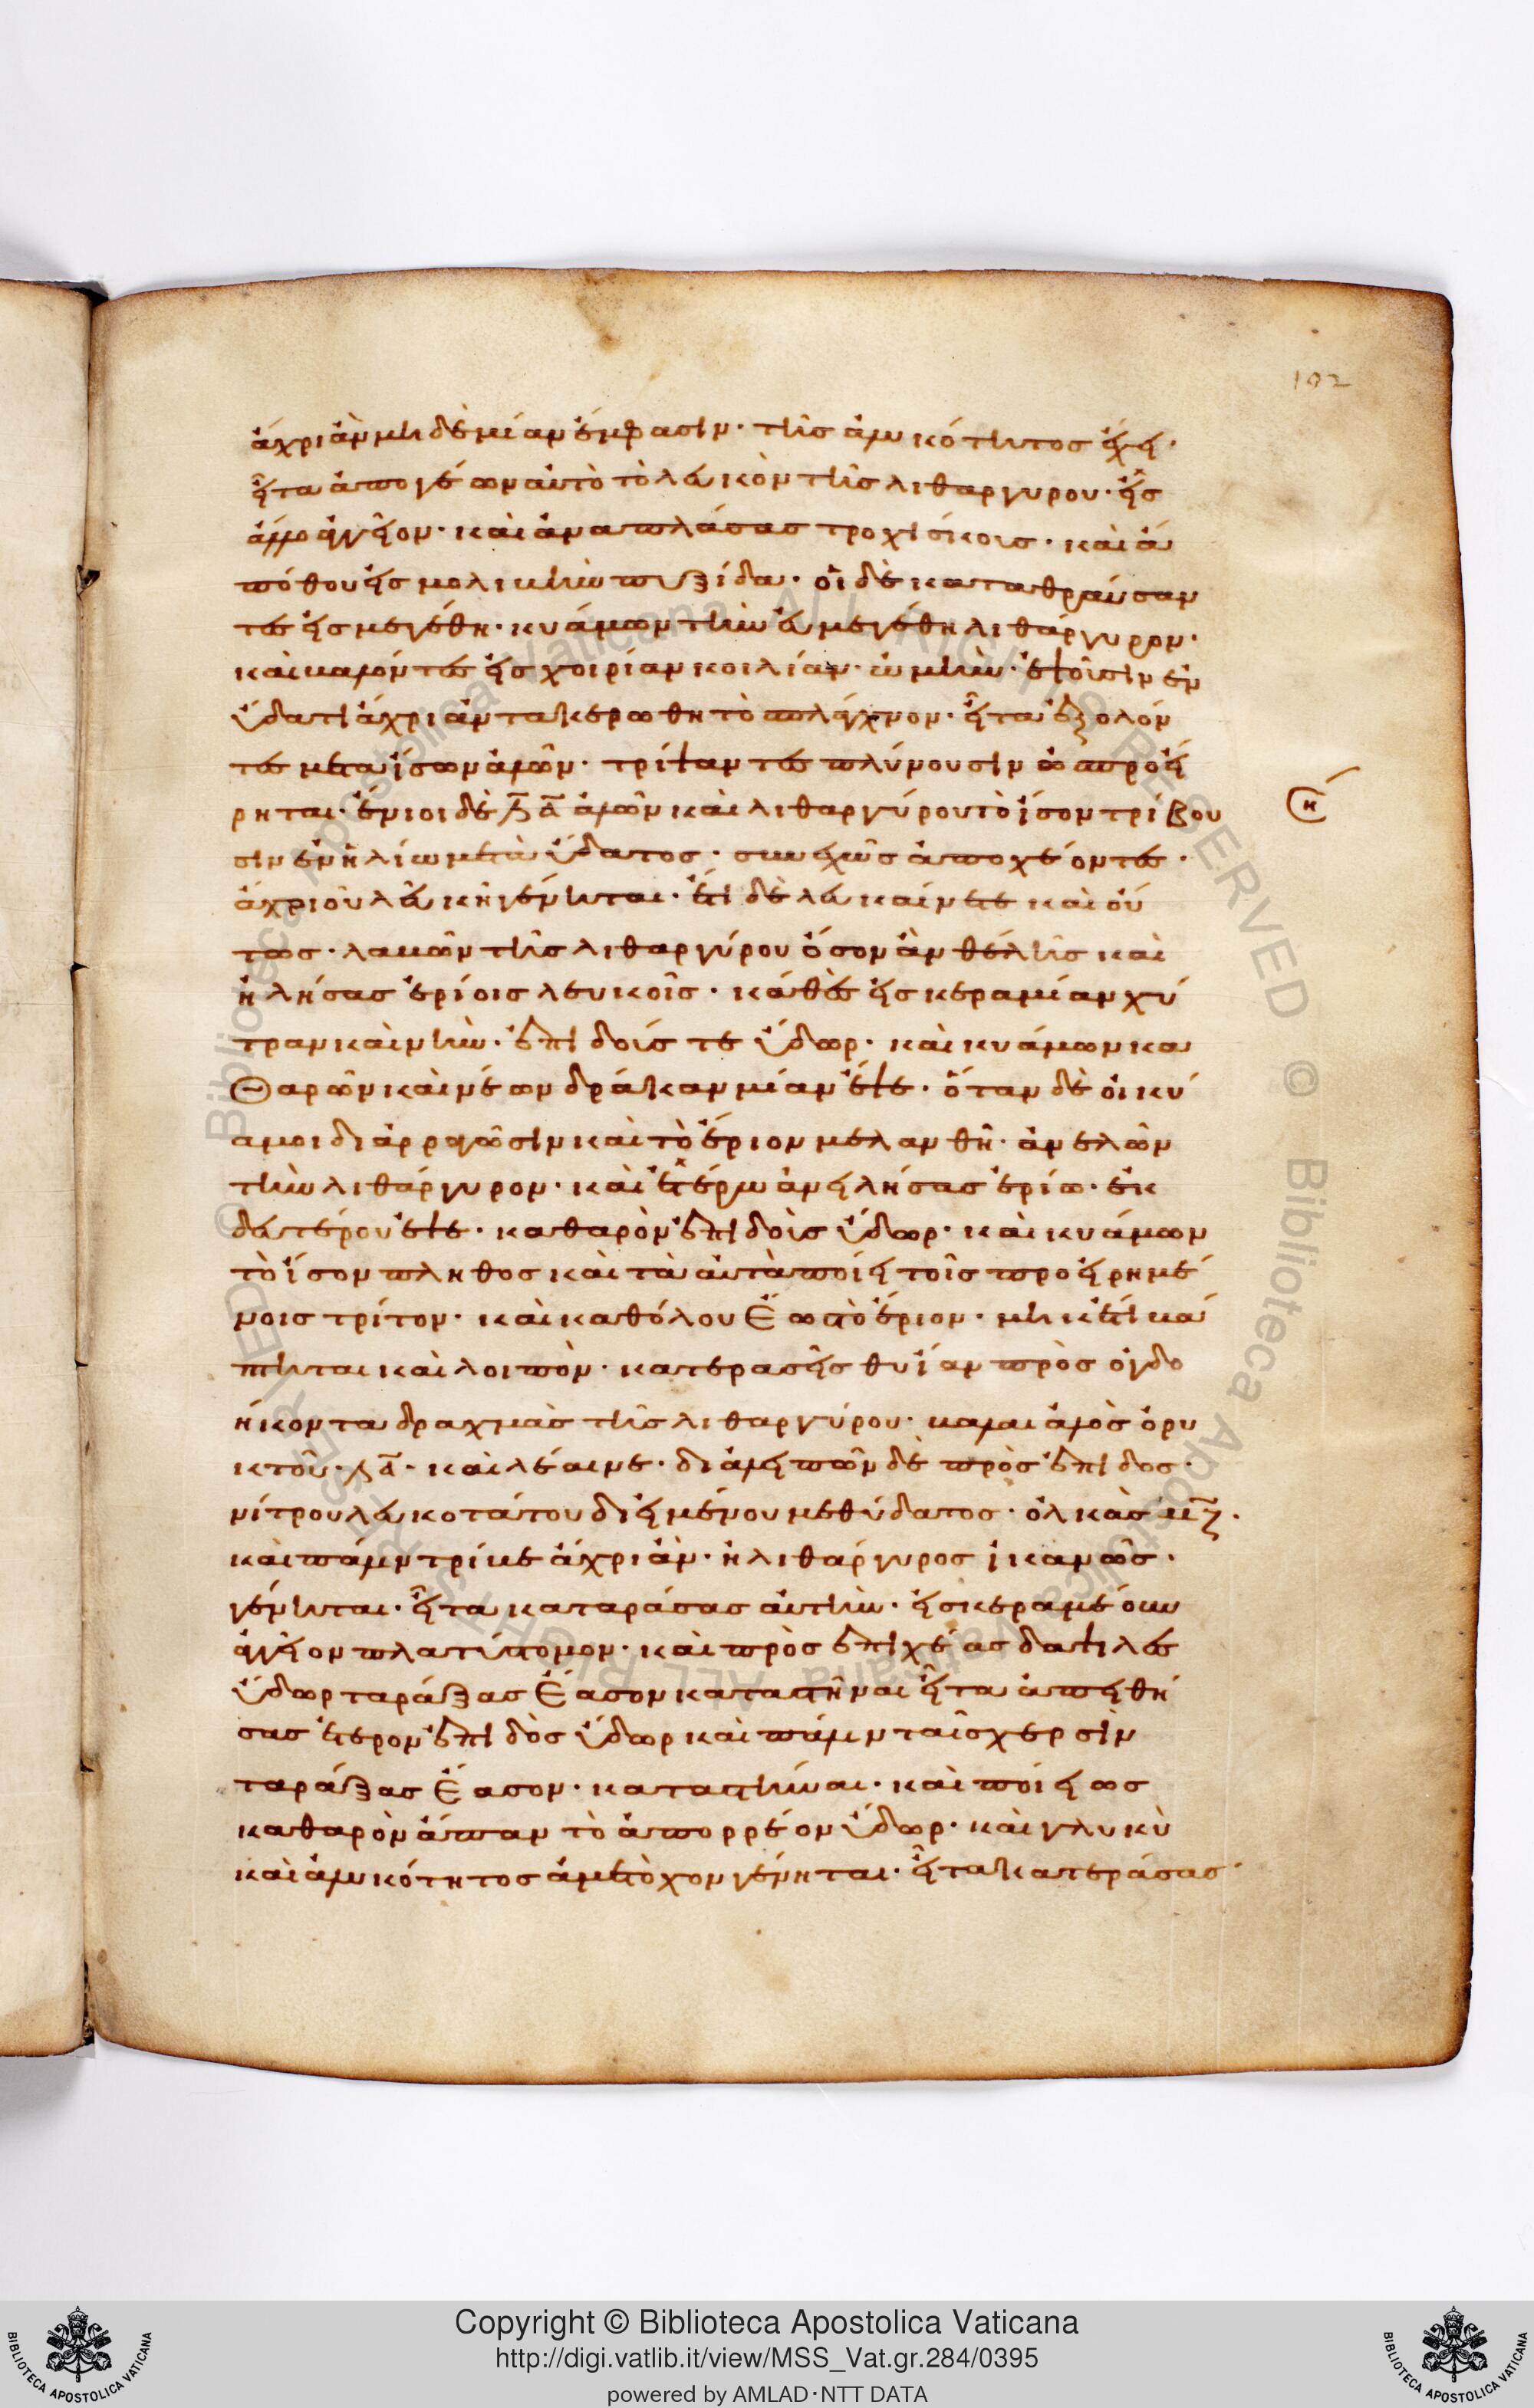 102
ἄχρι ἂν μηδὲ μίαν ἔμφασιν· τῆς ἁλυκότητος ἔχει·
εἶτα ἀπογέων αὐτὸ τὸ λευκὸν τῆς λιθαργυρου· εἰς
ἄλλο ἀγγεῖον· καὶ ἀναπλάσας τροχίσκους· καὶ ἀ
πόθου εἰς μολιβῆν πυξίδα· οἱ δὲ καταθραύσαν
τες εἰς μεγέθη· κυάμων τὴν εὐμεγέθη λιθάργυρον·
καὶ βαλόντες εἰς χοιρίαν κοιλίαν· ὠμὴν· ἑψοῦσιν ἐν
ὕδατι ἄχρι ἂν τακερωθη τὸ σπλάχνον· εἶτα ἐξελόν
τες μετα ἴσων ἁλῶν· τρίψαντες πλύνουσιν ὡς προεί
ρηται· ἔνιοι δὲ λι α ἁλῶν καὶ λιθαργύρου τὸ ἴσον τρίβου
σιν ἐν ἡλίω μετὰ ὕδατος· συνεχῶς ἀποχέοντες·
ἄχρι οὗ λευκὴ γένηται· ἔτι δὲ λευκαίνεται καὶ οὕ
τως· λαβὼν τῆς λιθαργύρου ὅσον ἂν θέλης καὶ
εἱλήσας ἐρίοις λευκοῖς· κάθες εἰς κεραμίαν χύ
τραν καὶνὴν· ἐπιδούς τε ὕδωρ· καὶ κυάμων κα
θαρῶν καὶ νέων δράκαν μίαν ἕψε· ὅταν δὲ οἱ κύ
αμοι διαρραγῶσιν καὶ τὸ ἔριον μελανθῆ· ἀνελὼν
τὴν λιθάργυρον· καὶ ἑτέρω ἀνειλήσας ἐρίω· ἐκ
δευτέρου ἕψε· καθαρὸν ἐπιδοὺς ὕδωρ· καὶ κυάμων
τὸ ἴσον πληθος καὶ τὰ αὐτὰ ποίει τοῖς προειρημέ
νοις τρίτον· καὶ καθόλου ἕως τὸ ἔριον· μηκέτι βά
πτηται καὶ λοιπὸν· κατερασεῖς θυΐαν πρὸς ὀγδο
ήκοντα δραχμὰς τῆς λιθαργύρου· βαλαι ἁλὸς ὀρυ
κτοῦ· λι α· καὶ λέαινε· διαλειπὼν δὲ πρὸς ἐπιδος·
νίτρου λευκοτάτου διειμένου μεθύδατος· ὁλκὰς μζ·
καὶ πάλιν τρίβε ἄχρι ἂν· ἡ λιθάργυρος ἱκανῶς·
γένηται· εἶτα καταράσας αὐτὴν· εἰς κεραμέουν
ἀγγεῖον πλατύστομον· καὶ πρὸς ἐπιχέας δαψιλὲς
ὕδωρ ταράξας ἔασον καταστῆναι εἶτα ἀπηθή
σας ἕτερον ἐπιδὸς ὕδωρ καὶ πάλιν ταῖς χερσὶν
ταράξας ἔασον· καταστῆναι· καὶ ποίει ὡς
καθαρὸν ἅπαν τὸ ἀπορρέον ὕδωρ· καὶ γλυκὺ
καὶ ἁλυκότητος ἀμέτοχον γένηται· εἶτα κατεράσας
Copyright © Biblioteca Apostolica Vaticana
http://digi.vatlib.it/view/MSS_Vat.gr.284/0395
powered by AMLAD·NTT DATA